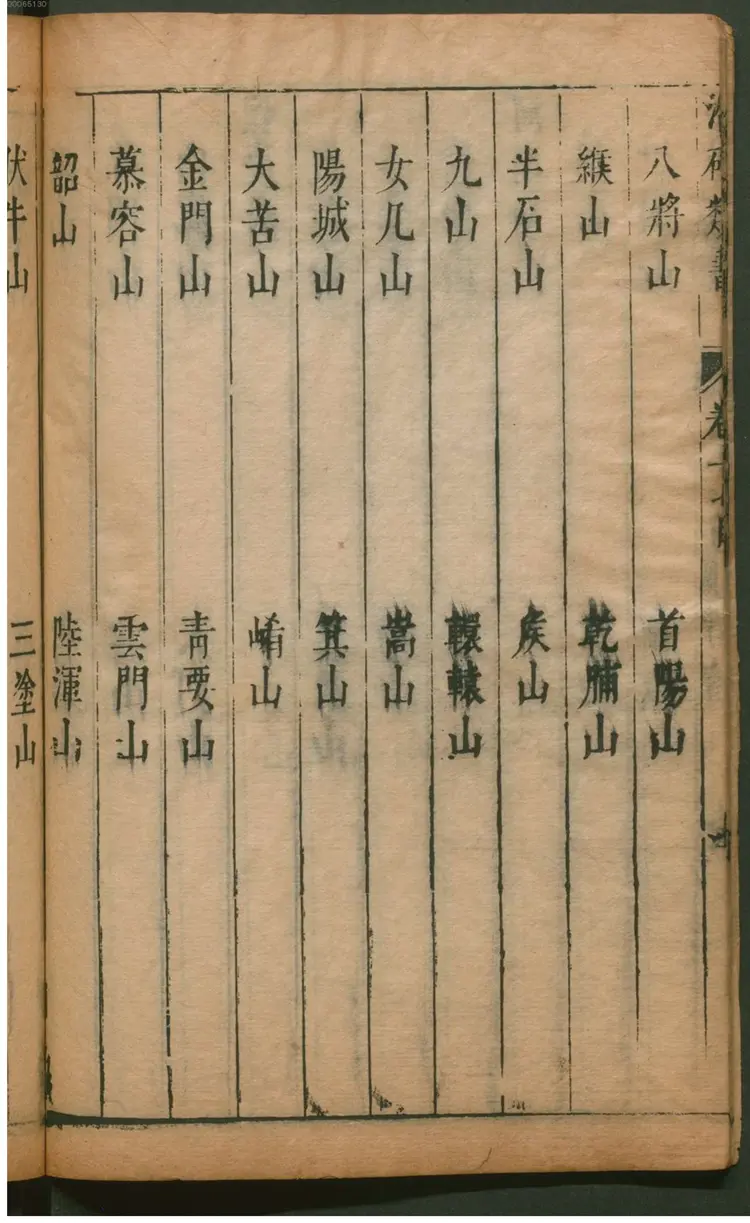 00065130
八將山　首陽山
緱山　乾脯山
半石山　矦山
九山　轘轅山
女几山　嵩山
陽城山　箕山
大苦山　崤山
金門山　青要山
慕容山　雲門山
韶山　陸渾山
伏牛山　三塗山